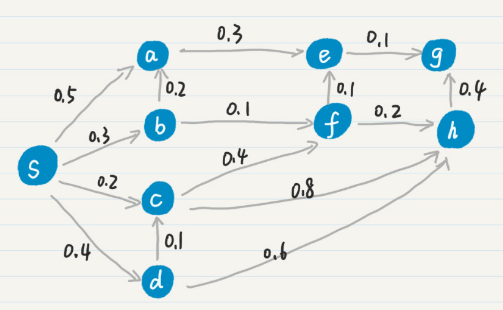 0.3
0.1
a
e
g
0.5
0.2
0.1
0.4
0.3
b
0.1
f
0.2
h
S
0.2
0.4
c
0.8
0.4
0.1
0.6
d